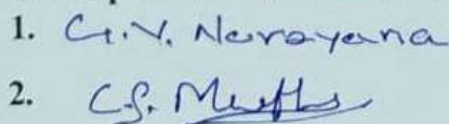 1. G.V. Narayana
2. C.S. Murthy